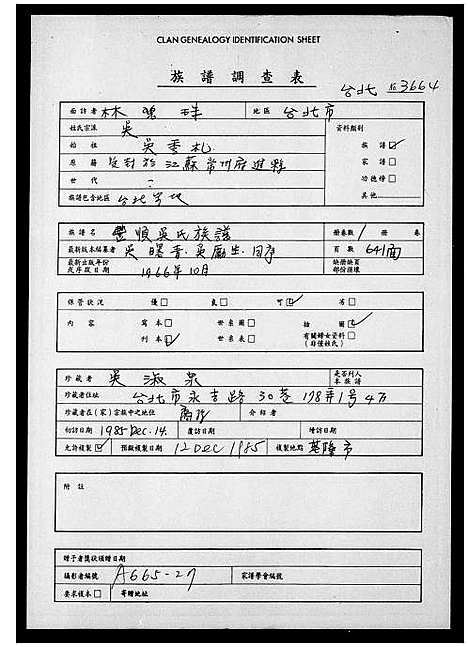 CLAN GENEALOGY IDENTIFICATION SHEET
族譜調查表
台北 3664
面訪者 林 地區 台北市
姓氏宗派 吳 資料類別
始祖 吳季札 族譜☑
原籍 受封於江蘇常州府武進縣 家譜□
世代 功德榜□
族譜包含地區 台北 其他
譜名 豐順吳氏族譜 冊卷數 1 冊 卷
最新版本編纂者 吳曙青.吳勵生.同序 頁數 641面
最新出版年份或序跋日期 1966年10月 缺冊缺頁部份損壞
保管狀況 優□ 良□ 可☑ 劣□
內容 寫本□ 世系圖□ 插圖☑
刊本☑ 世系表□ 有關婦女資料□(非僅姓氏)
珍藏者 吳淑泉 是否列入本族譜
珍藏者住址 台北市永吉路30巷178弄1號4
珍藏者在(家)宗族中之地位 介紹者
初訪日期 1985 Dec. 14. 覆訪日期 增訪日期
允許複製☑ 預擬複製日期 12 Dec 1985 複製地點 基隆市
附註
贈予者獎狀頒贈日期
攝影者編號 A665-27 家譜學會編號
要求複本□ 寄贈地址